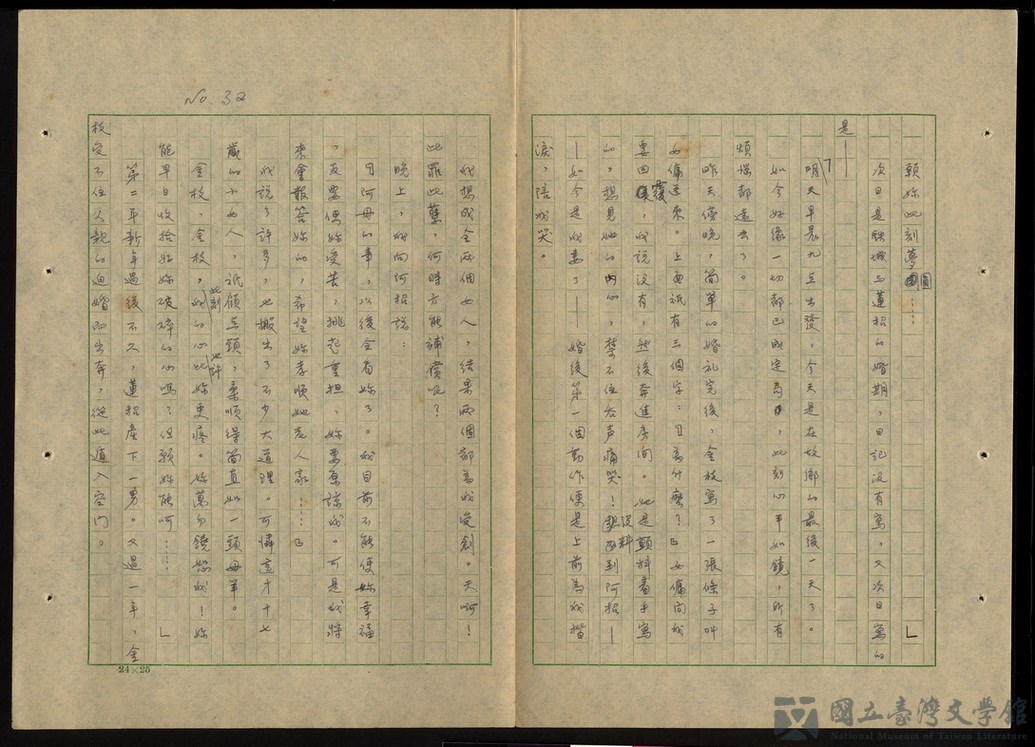 願妳此刻夢圓……」
次日是駛城与蓮招的婚期，日記沒有寫，又次日寫的
是——
「明天早晨九点出發，今天是在故鄉的最後一天了。
如今好像一切都已成定局，此刻心平如鏡，所有
煩惱都遠去了。
昨天傍晚，簡單的婚礼完後，金枝寫了一張條子叫
女傭送來。上面祇有三個字：『為什麼？』女傭問我
要回覆，我說沒有，然後奔進房間。她是顫抖着手寫
的，想見她的內心，禁不住大声痛哭！沒料到阿招—
—如今是我妻了——婚後第一個動作便是上前為我揩
淚，陪我哭。
我想成全兩個女人，結果兩個都為我受創。天啊！
此罪此孽，何時方能補償呢？
晚上，我向阿招說：
『阿母的事，以後全看妳了。我目前不能使妳幸福
，反要使妳受苦，挑起重担，妳要原諒我。可是我將
來會報答妳的，希望妳孝順她老人家……』
我說了許多，也搬出了不少大道理。可憐這才十七
歲的小女人，祇顧点頭，柔順得簡直如一頭母羊。
金枝，金枝，此刻我的心也許比妳更疼。妳萬勿饒恕我！妳
能早日收拾妳破碎的心嗎？但願妳能啊……」
第二年新年過後不久，蓮招產下一男。又過一年，金
枝受不住人親的迫婚而出奔，從此遁入空门。
No. 32
24×25
國立臺灣文學館
National Museum of Taiwan Literature